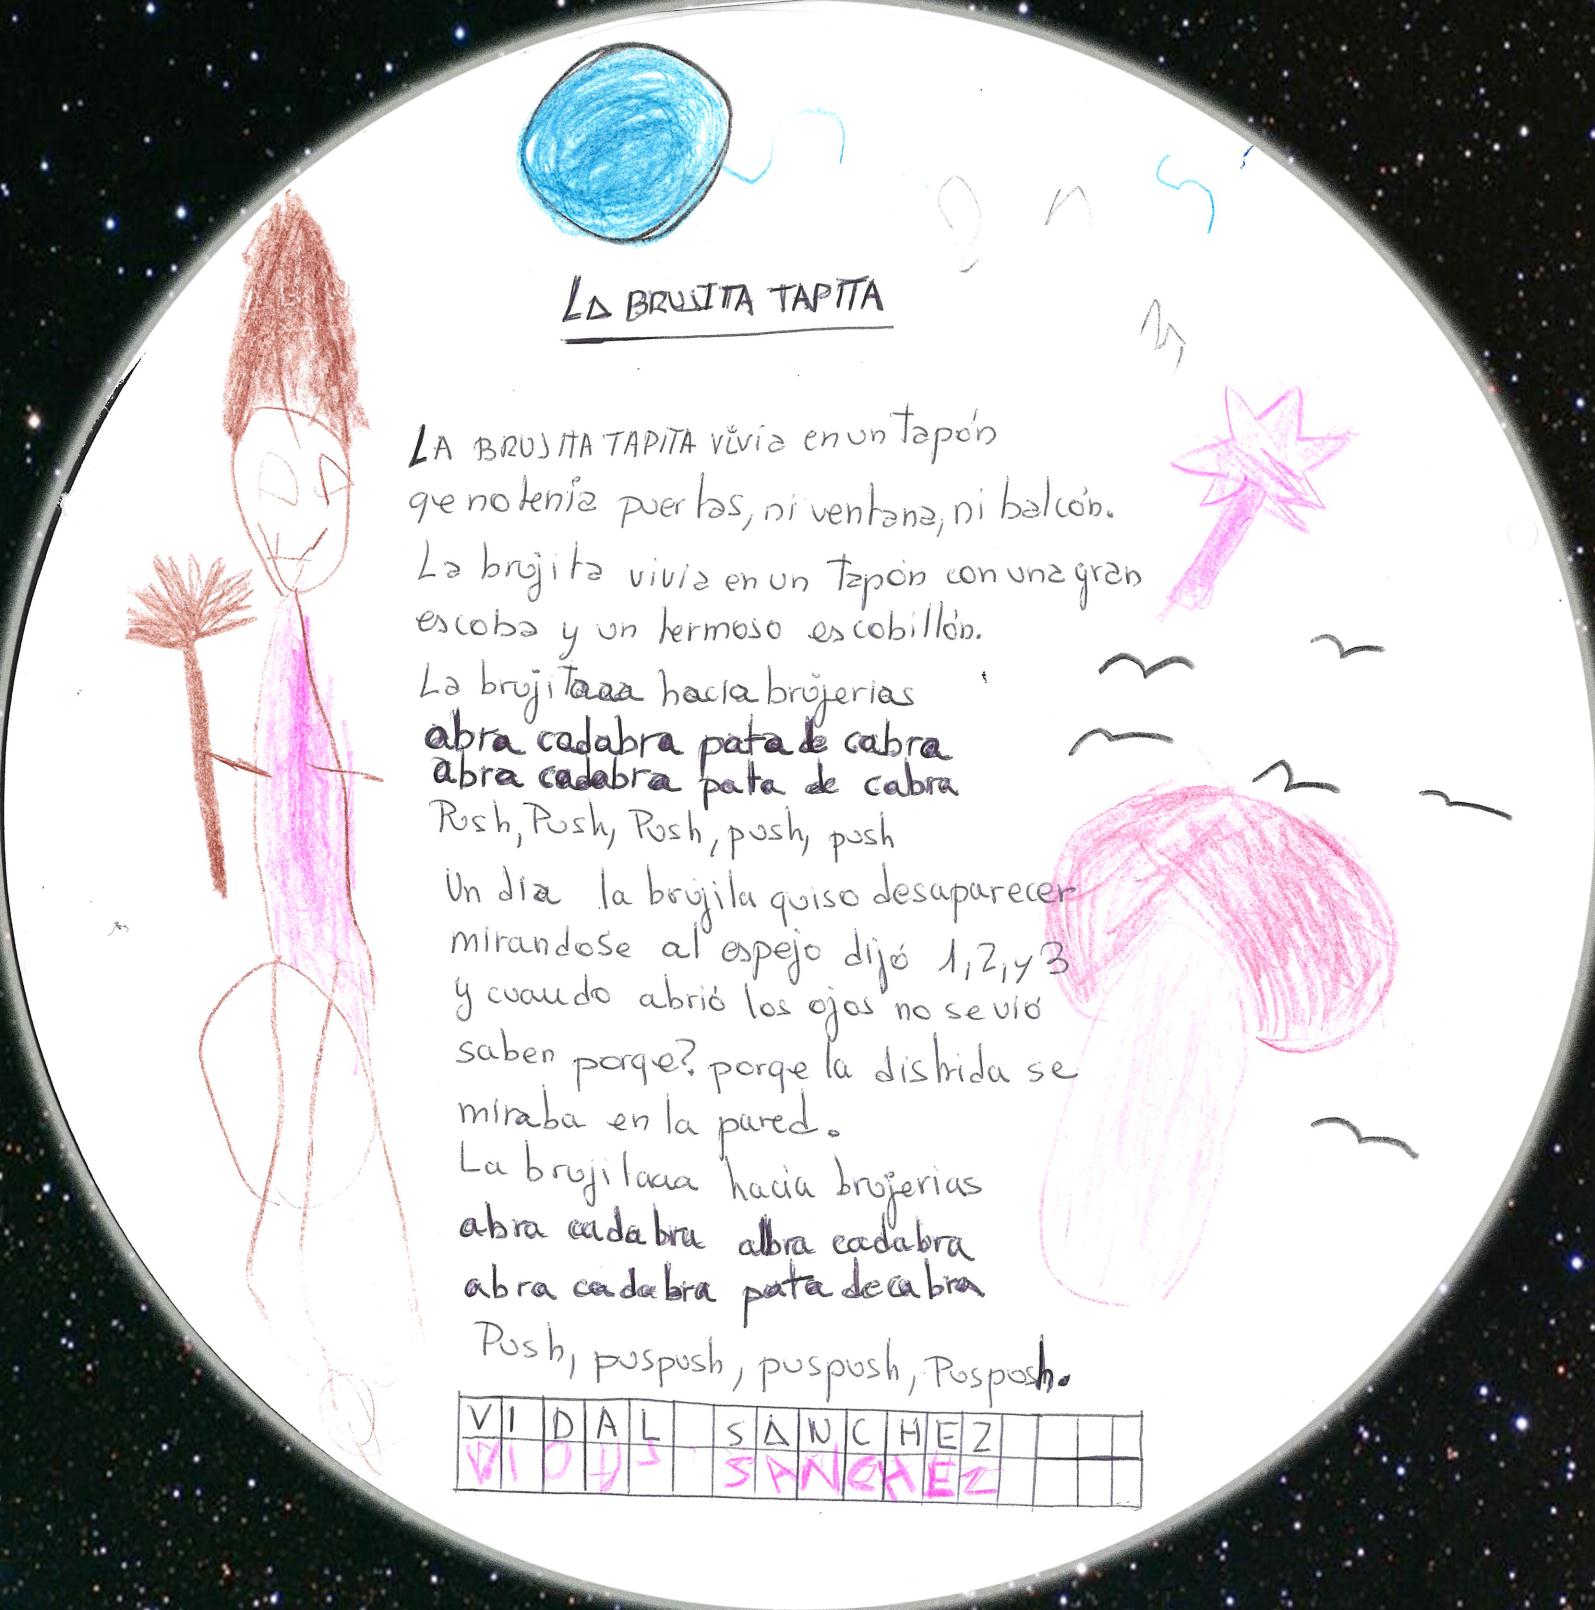 LA BRUJITA TAPITA
LA BRUJITA TAPITA vivía en un tapón
que no tenía puertas, ni ventana, ni balcón.
La brujita vivía en un tapón con una gran
escoba y un hermoso escobillón.
La brujitaaa hacía brujerias
abra cadabra pata de cabra
abra cadabra pata de cabra
Push, Push, Push, push, push
Un día la brujita quiso desaparecer
mirandose al espejo dijó 1, 2, y 3
y cuando abrió los ojos no se vió
saben porqe? porqe la distrida se
miraba en la pared.
La brujitaaa hacia brujerias
abra cadabra abra cadabra
abra cadabra pata de cabra
Push, puspush, puspush, Pusposh.
VIDAL SANCHEZ
VIDAL SANCHEZ